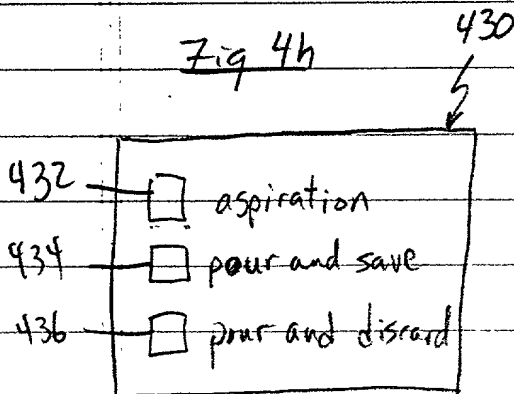 430
Fig 4h
432 aspiration
434 pour and save
436 pour and discard